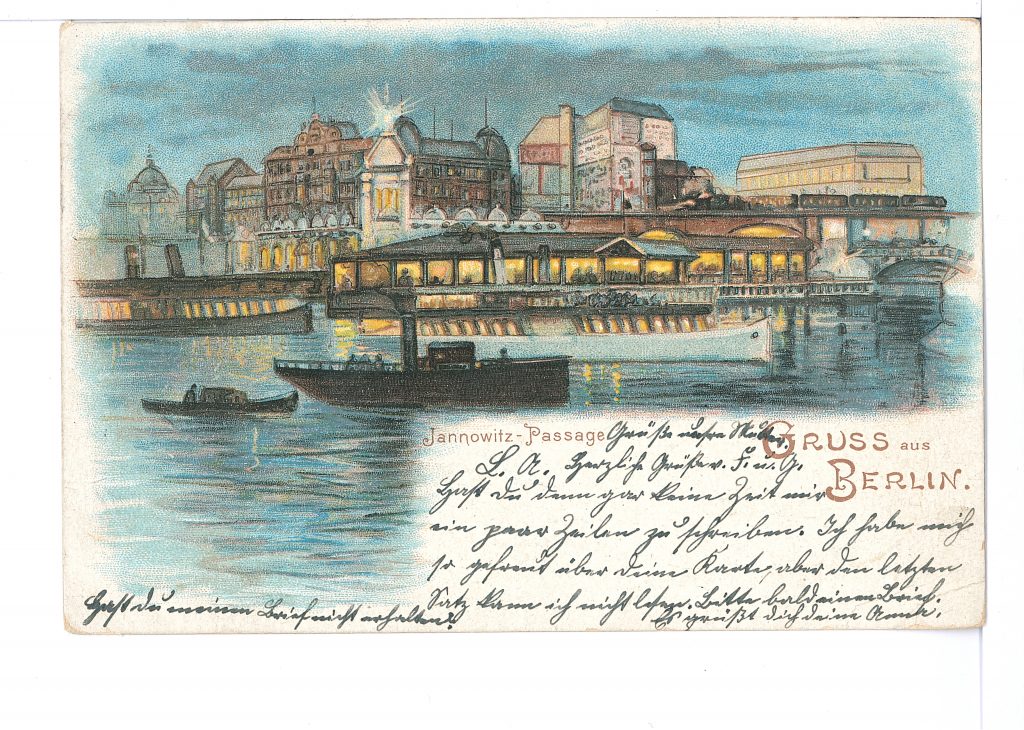 Jannowitz-Passage Grüße unsre Mutter.
GRUSS aus
BERLIN.
L. A. Herzliche Grüße v. F. u. G.
Hast du denn gar keine Zeit mir
ein paar Zeilen zu schreiben. Ich habe mich
so gefreut über deine Karte, aber den letzten
Satz kann ich nicht lesen. Bitte bald einen Brief.
Es grüßt dich deine Anna.
Hast du meinen Brief nicht erhalten?